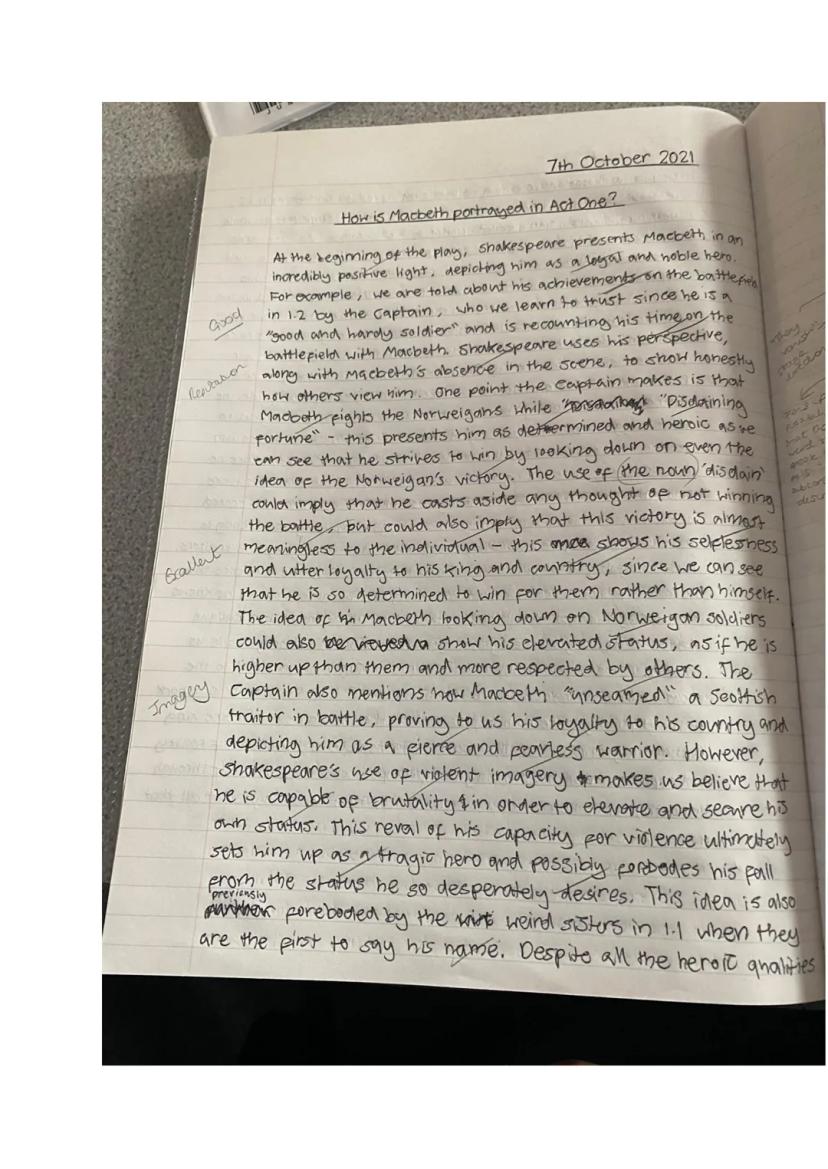 7th October 2021
How is Macbeth portrayed in Act One?
At the beginning of the play, Shakespeare presents Macbeth in an
incredibly positive light, depicting him as a loyal and noble hero.
For example, we are told about his achievements on the battlefield
in 1.2 by the Captain, who we learn to trust since he is a
Good
"good and hardy soldier" and is recounting his time on the
battlefield with Macbeth. Shakespeare uses his perspective,
along with Macbeth's absence in the scene, to show honestly
how others view him. One point the Captain makes is that
Macbeth fights the Norweigans while "Disdaining
fortune" - this presents him as determined and heroic as we
can see that he strives to win by looking down on even the
idea of the Norweigan's victory. The use of the noun 'disdain'
could imply that he casts aside any thought of not winning
the battle, but could also imply that this victory is almost
Excellent
meaningless to the individual - this shows his selflessness
and utter loyalty to his king and country, since we can see
that he is so determined to win for them rather than himself.
The idea of Macbeth looking down on Norweigan soldiers
could also show his elevated status, as if he is
higher up than them and more respected by others. The
Imagery
Captain also mentions how Macbeth "unseamed" a Scottish
traitor in battle, proving to us his loyalty to his country and
depicting him as a fierce and fearless warrior. However,
Shakespeare's use of violent imagery makes us believe that
he is capable of brutality in order to elevate and secure his
own status. This reval of his capacity for violence ultimately
sets him up as a tragic hero and possibly forbodes his fall
from the status he so desperately desires. This idea is also
previously
foreboded by the weird sisters in 1.1 when they
are the first to say his name. Despite all the heroic qualities